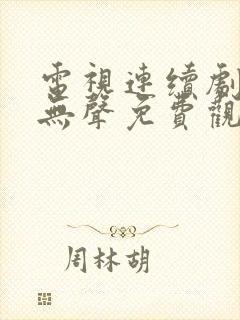 電視連續劇
無聲免費觀
周林胡